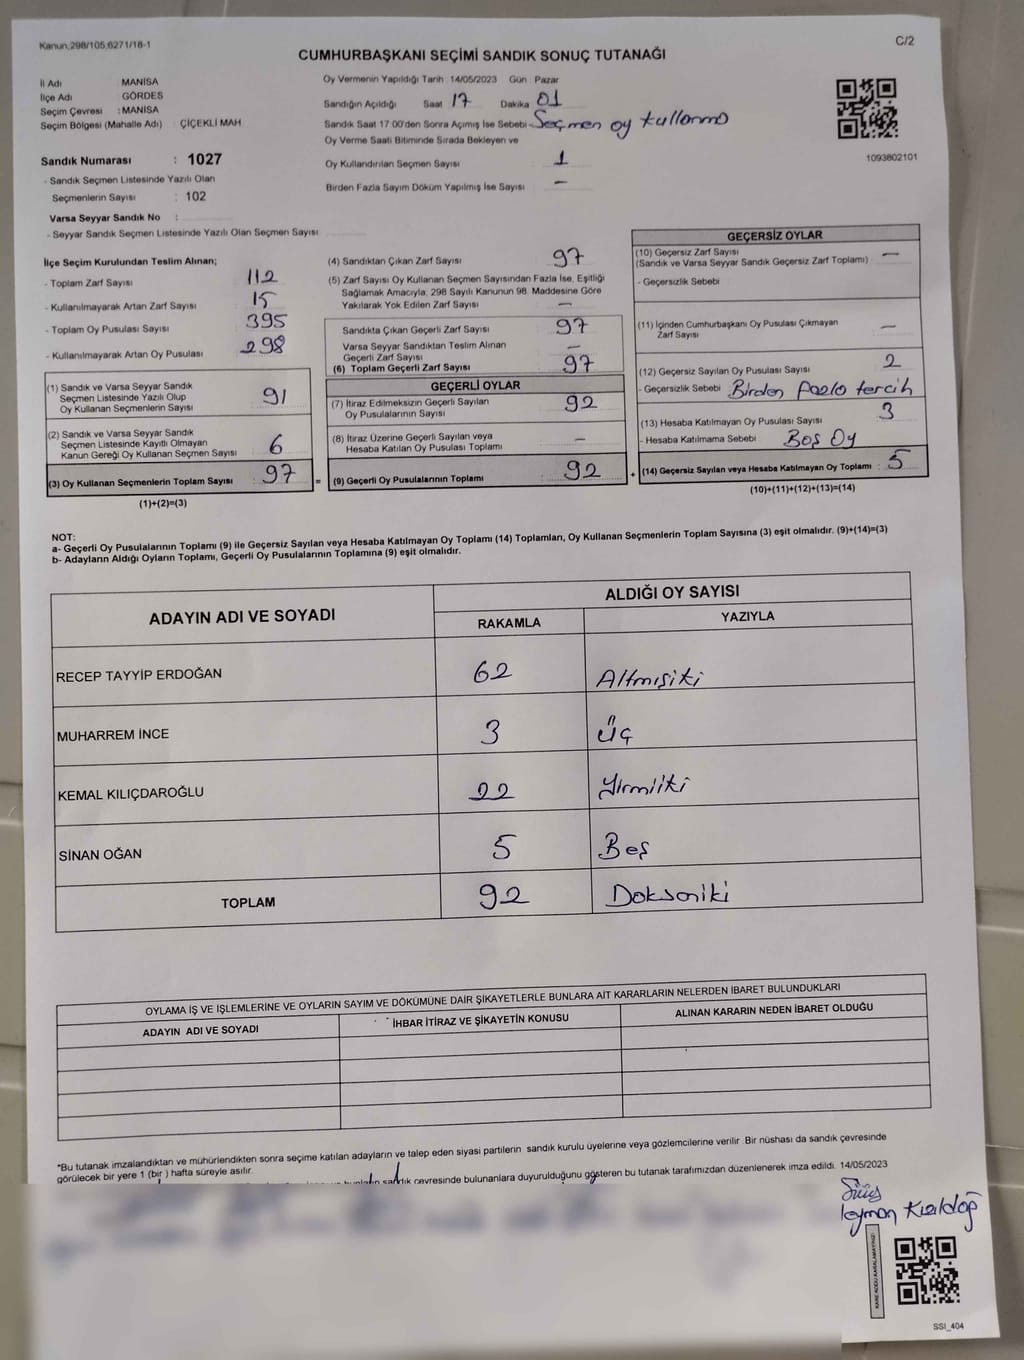 Kanun,298/105,6271/18-1
C/2
CUMHURBAŞKANI SEÇİMİ SANDIK SONUÇ TUTANAĞI
İl Adı : MANİSA
İlçe Adı : GÖRDES
Seçim Çevresi : MANİSA
Seçim Bölgesi (Mahalle Adı) : ÇİÇEKLİ MAH
Sandık Numarası : 1027
- Sandık Seçmen Listesinde Yazılı Olan
Seçmenlerin Sayısı : 102
Varsa Seyyar Sandık No :
- Seyyar Sandık Seçmen Listesinde Yazılı Olan Seçmen Sayısı
Oy Vermenin Yapıldığı Tarih : 14/05/2023 Gün : Pazar
Sandığın Açıldığı Saat 17 Dakika 01
Sandık Saat 17:00'den Sonra Açımış İse Sebebi - Seçmen oy kullanma
Oy Verme Saati Bitiminde Sırada Bekleyen ve
Oy Kullandırılan Seçmen Sayısı 1
Birden Fazla Sayım Döküm Yapılmış İse Sayısı –
1093802101
İlçe Seçim Kurulundan Teslim Alınan;
- Toplam Zarf Sayısı 112
- Kullanılmayarak Artan Zarf Sayısı 15
- Toplam Oy Pusulası Sayısı 395
- Kullanılmayarak Artan Oy Pusulası 298
(1) Sandık ve Varsa Seyyar Sandık
Seçmen Listesinde Yazılı Olup
Oy Kullanan Seçmenlerin Sayısı 91
(2) Sandık ve Varsa Seyyar Sandık
Seçmen Listesinde Kayıtlı Olmayan
Kanun Gereği Oy Kullanan Seçmen Sayısı 6
(3) Oy Kullanan Seçmenlerin Toplam Sayısı : 97
(1)+(2)=(3)
(4) Sandıktan Çıkan Zarf Sayısı 97
(5) Zarf Sayısı Oy Kullanan Seçmen Sayısından Fazla İse, Eşitliği
Sağlamak Amacıyla, 298 Sayılı Kanunun 98. Maddesine Göre
Yakılarak Yok Edilen Zarf Sayısı –
Sandıkta Çıkan Geçerli Zarf Sayısı 97
Varsa Seyyar Sandıktan Teslim Alınan
Geçerli Zarf Sayısı –
(6) Toplam Geçerli Zarf Sayısı 97
GEÇERLİ OYLAR
(7) İtiraz Edilmeksizin Geçerli Sayılan
Oy Pusulalarının Sayısı 92
(8) İtiraz Üzerine Geçerli Sayılan veya
Hesaba Katılan Oy Pusulası Toplamı –
= (9) Geçerli Oy Pusulalarının Toplamı 92 +
GEÇERSİZ OYLAR
(10) Geçersiz Zarf Sayısı
(Sandık ve Varsa Seyyar Sandık Geçersiz Zarf Toplamı) –
- Geçersizlik Sebebi
(11) İçinden Cumhurbaşkanı Oy Pusulası Çıkmayan
Zarf Sayısı –
(12) Geçersiz Sayılan Oy Pusulası Sayısı 2
- Geçersizlik Sebebi Birden fazla tercih
(13) Hesaba Katılmayan Oy Pusulası Sayısı 3
- Hesaba Katılmama Sebebi Boş Oy
(14) Geçersiz Sayılan veya Hesaba Katılmayan Oy Toplamı : 5
(10)+(11)+(12)+(13)=(14)
NOT:
a- Geçerli Oy Pusulalarının Toplamı (9) ile Geçersiz Sayılan veya Hesaba Katılmayan Oy Toplamı (14) Toplamları, Oy Kullanan Seçmenlerin Toplam Sayısına (3) eşit olmalıdır. (9)+(14)=(3)
b- Adayların Aldığı Oyların Toplamı, Geçerli Oy Pusulalarının Toplamına (9) eşit olmalıdır.
ADAYIN ADI VE SOYADI
ALDIĞI OY SAYISI
RAKAMLA YAZIYLA
RECEP TAYYİP ERDOĞAN 62 Altmışiki
MUHARREM İNCE 3 Üç
KEMAL KILIÇDAROĞLU 22 Yirmiiki
SİNAN OĞAN 5 Beş
TOPLAM 92 Doksaniki
OYLAMA İŞ VE İŞLEMLERİNE VE OYLARIN SAYIM VE DÖKÜMÜNE DAİR ŞİKAYETLERLE BUNLARA AİT KARARLARIN NELERDEN İBARET BULUNDUKLARI
ADAYIN ADI VE SOYADI İHBAR İTİRAZ VE ŞİKAYETİN KONUSU ALINAN KARARIN NEDEN İBARET OLDUĞU
*Bu tutanak imzalandıktan ve mühürlendikten sonra seçime katılan adayların ve talep eden siyasi partilerin sandık kurulu üyelerine veya gözlemcilerine verilir. Bir nüshası da sandık çevresinde
görülecek bir yere 1 (bir ) hafta süreyle asılır.
sandık çevresinde bulunanlara duyurulduğunu gösteren bu tutanak tarafımızdan düzenlenerek imza edildi. 14/05/2023
SSI_404